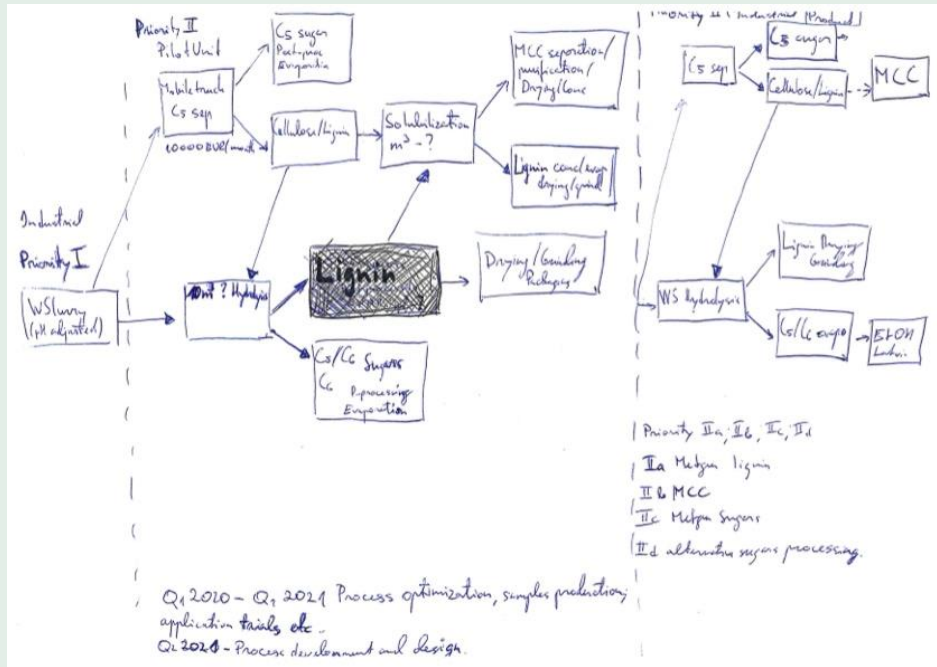 Priority II
Pilot Unit
C5 sugar
Evaporatia
Mobile truck
C5 sep
10000 EUR/month
Cellulose/Lignin
Solubilization
m³ - ?
MCC separation/
purification/
Drying/Conc
Lignin conc/evap
drying/grind
Industrial
Priority I
WSlurry
(pH adjusted)
? Hydrolysis
Lignin
?
Drying/Grinding
Packaging
C5/C6 Sugars
C6
Evaporation
Priority II Industrial (Product)
C5 sep
C5 sugar
Cellulose/Lignin
MCC
WS Hydrolysis
Lignin Drying
Grinding
C5/C6 evapo
EtOH
Priority IIa, IIb, IIc, IId
IIa Metgen lignin
IIb MCC
IIc Metgen Sugars
IId alternative sugars processing.
Q1 2020 - Q1 2021 Process optimization, samples production,
application trials, etc.
Q2 2021 - Process development and design.